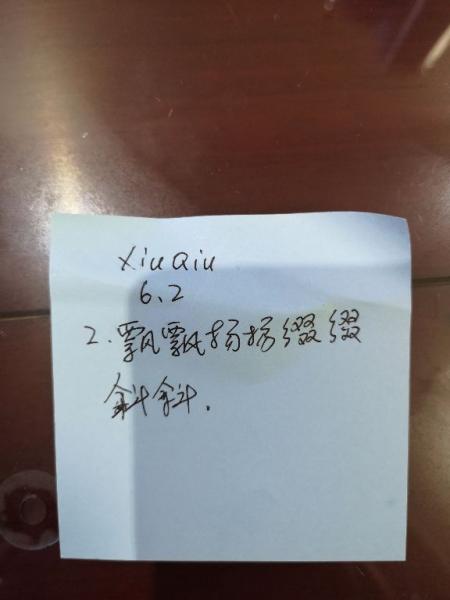 XiuQiu
6.2
2.飘飘扬扬缀缀
斜斜.